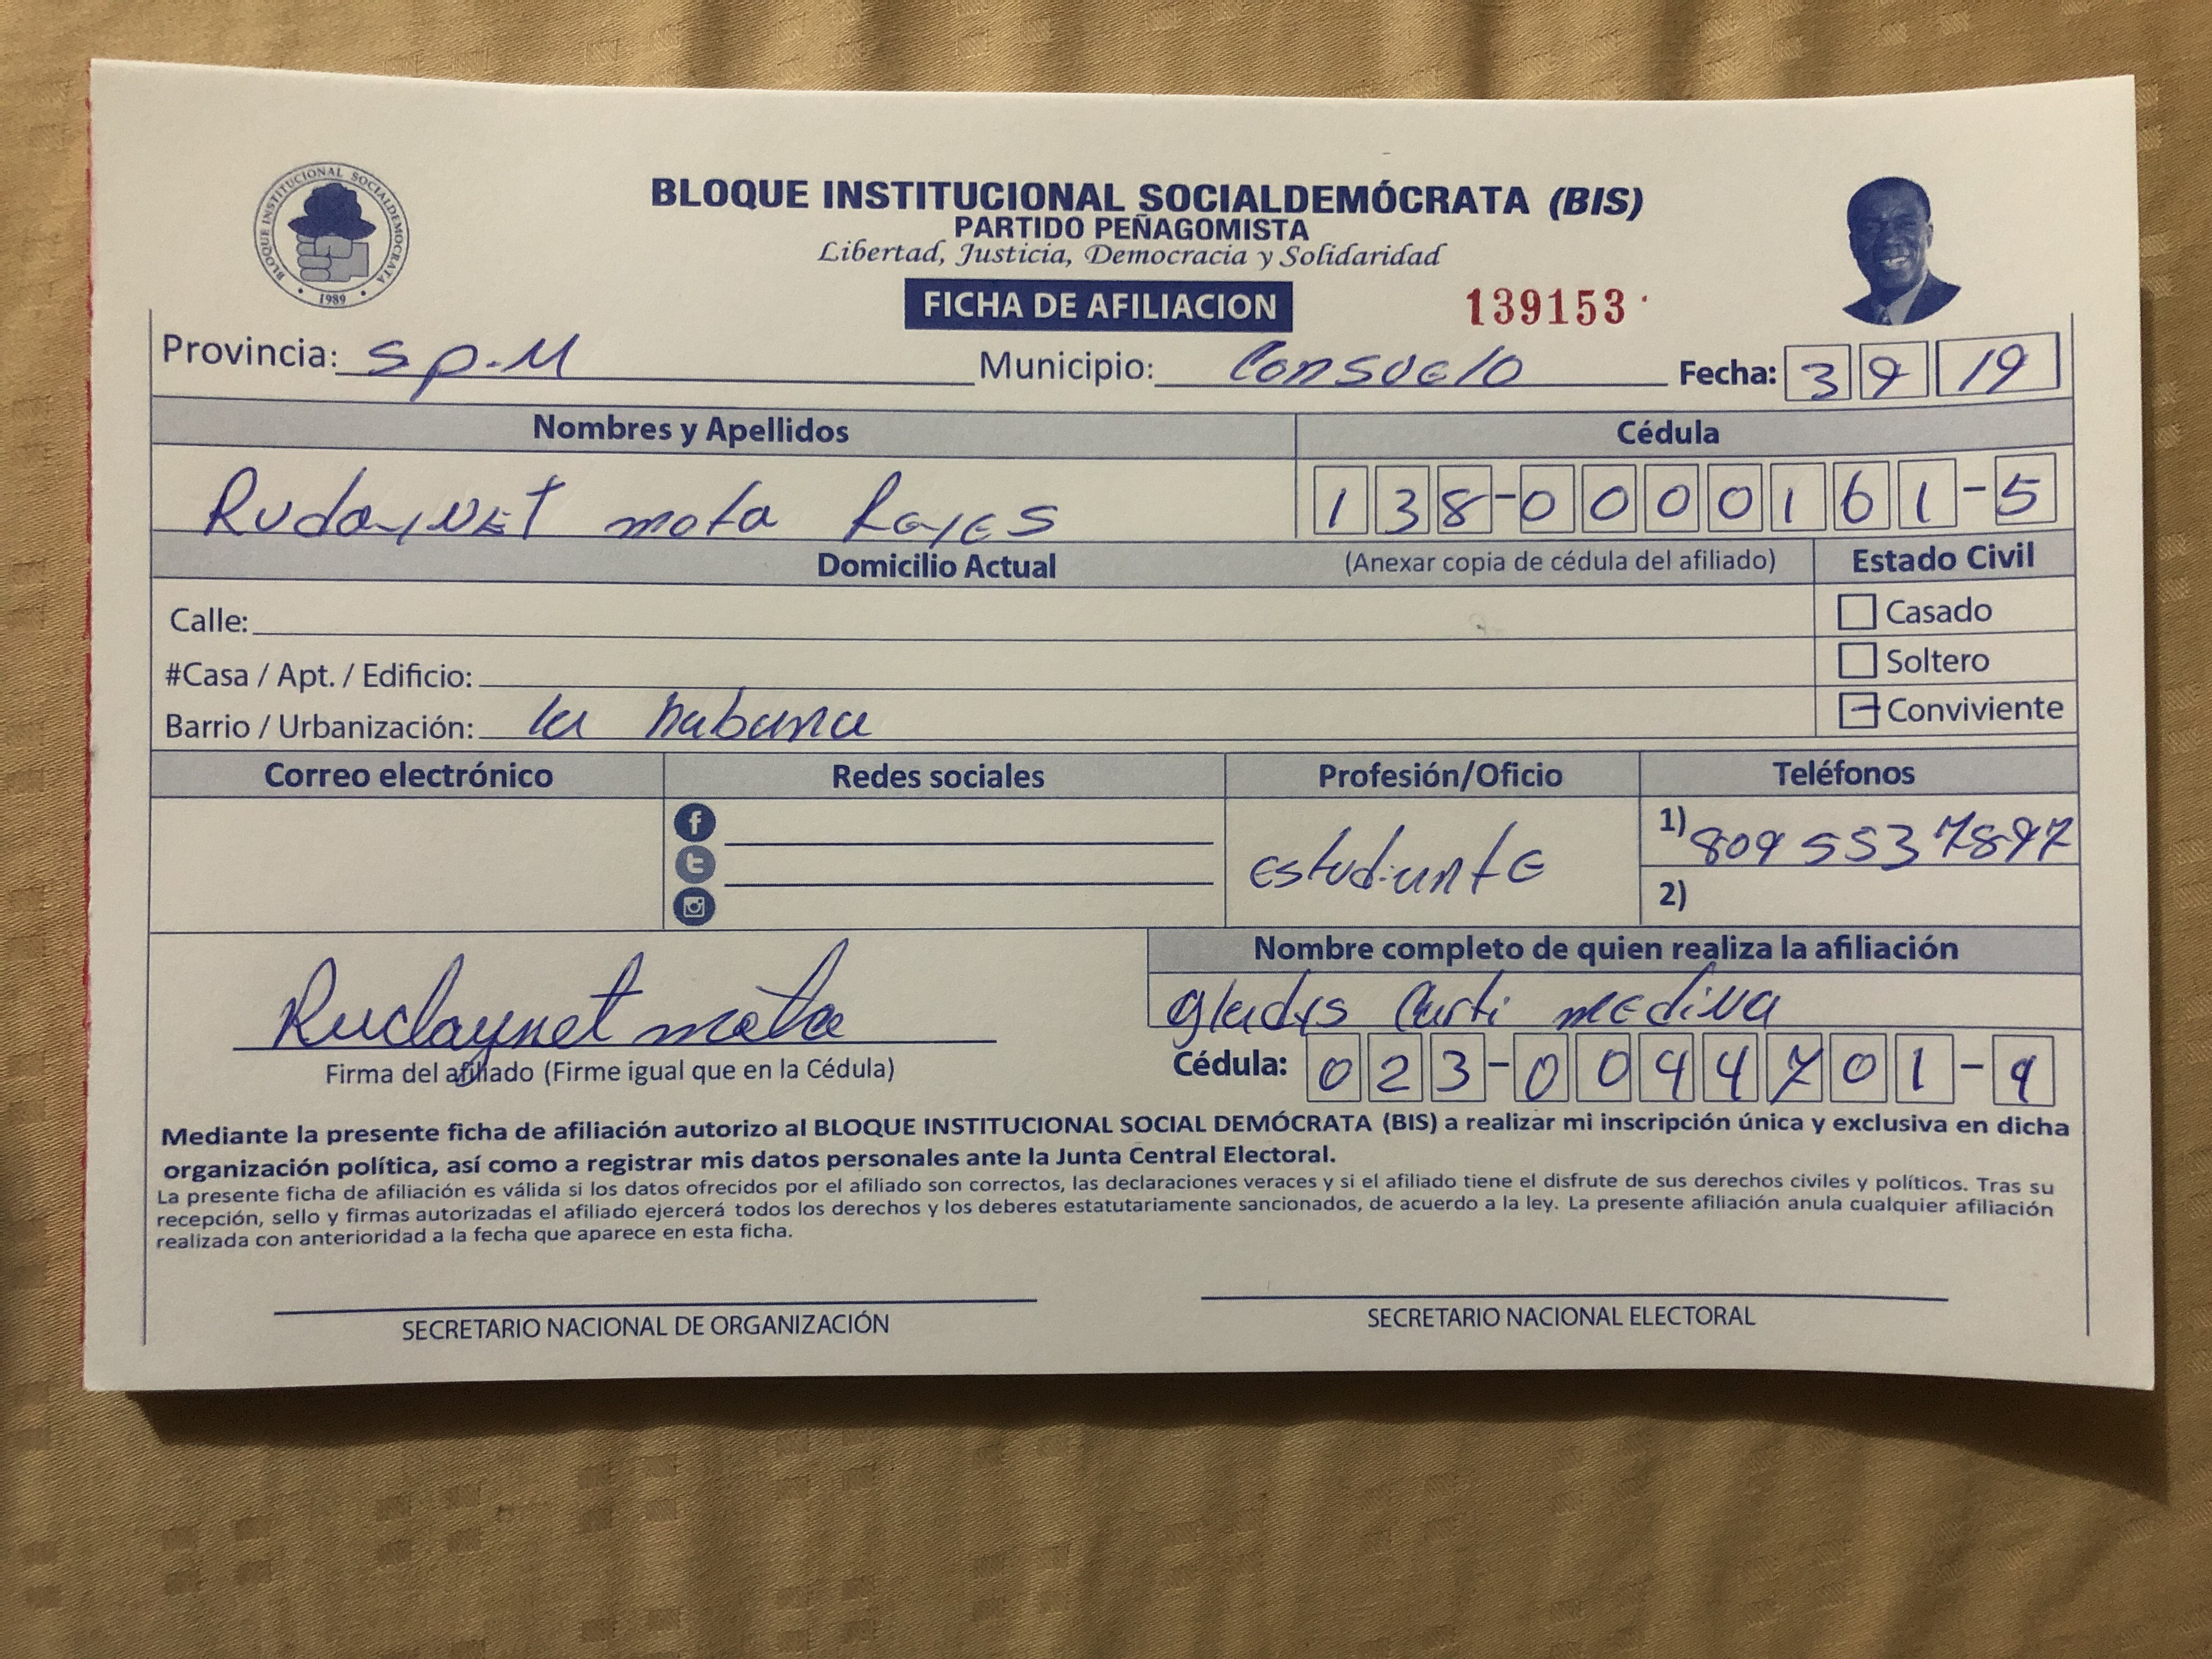 BLOQUE INSTITUCIONAL SOCIALDEMÓCRATA
1989
BLOQUE INSTITUCIONAL SOCIALDEMÓCRATA (BIS)
PARTIDO PEÑAGOMISTA
Libertad, Justicia, Democracia y Solidaridad
FICHA DE AFILIACION 139153
Provincia: S P.M Municipio: Consuelo Fecha: 3 9 19
Nombres y Apellidos Cédula
RudayNEt mota Reyes 138-0000161-5
Domicilio Actual (Anexar copia de cédula del afiliado) Estado Civil
Calle: Casado
#Casa / Apt. / Edificio: Soltero
Barrio / Urbanización: la habana Conviviente
Correo electrónico Redes sociales Profesión/Oficio Teléfonos
Estudiante 1) 809 553 7897
2)
Nombre completo de quien realiza la afiliación
Rudaynet mota gladys mEdina
Firma del afiliado (Firme igual que en la Cédula) Cédula: 023-0044701-9
Mediante la presente ficha de afiliación autorizo al BLOQUE INSTITUCIONAL SOCIAL DEMÓCRATA (BIS) a realizar mi inscripción única y exclusiva en dicha
organización política, así como a registrar mis datos personales ante la Junta Central Electoral.
La presente ficha de afiliación es válida si los datos ofrecidos por el afiliado son correctos, las declaraciones veraces y si el afiliado tiene el disfrute de sus derechos civiles y políticos. Tras su
recepción, sello y firmas autorizadas el afiliado ejercerá todos los derechos y los deberes estatutariamente sancionados, de acuerdo a la ley. La presente afiliación anula cualquier afiliación
realizada con anterioridad a la fecha que aparece en esta ficha.
SECRETARIO NACIONAL DE ORGANIZACIÓN SECRETARIO NACIONAL ELECTORAL